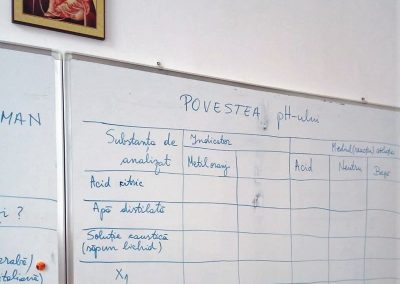 MAN
i ?
arabă/
italiană
POVESTEA pH-ului
Substanța de analizat
Indicator
Mediul (reacția) soluției
Metiloranj
Acid
Neutru
Bazic
Acid citric
Apă distilată
Soluție caustică
(săpun lichid)
X1